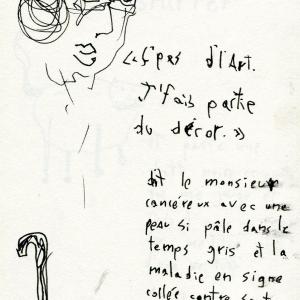 « C'pas d'l'Art.
J'fais partie
du décor. »
dit le monsieur
cancéreux avec une
peau si pâle dans le
temps gris et la
maladie en signe
collée contre